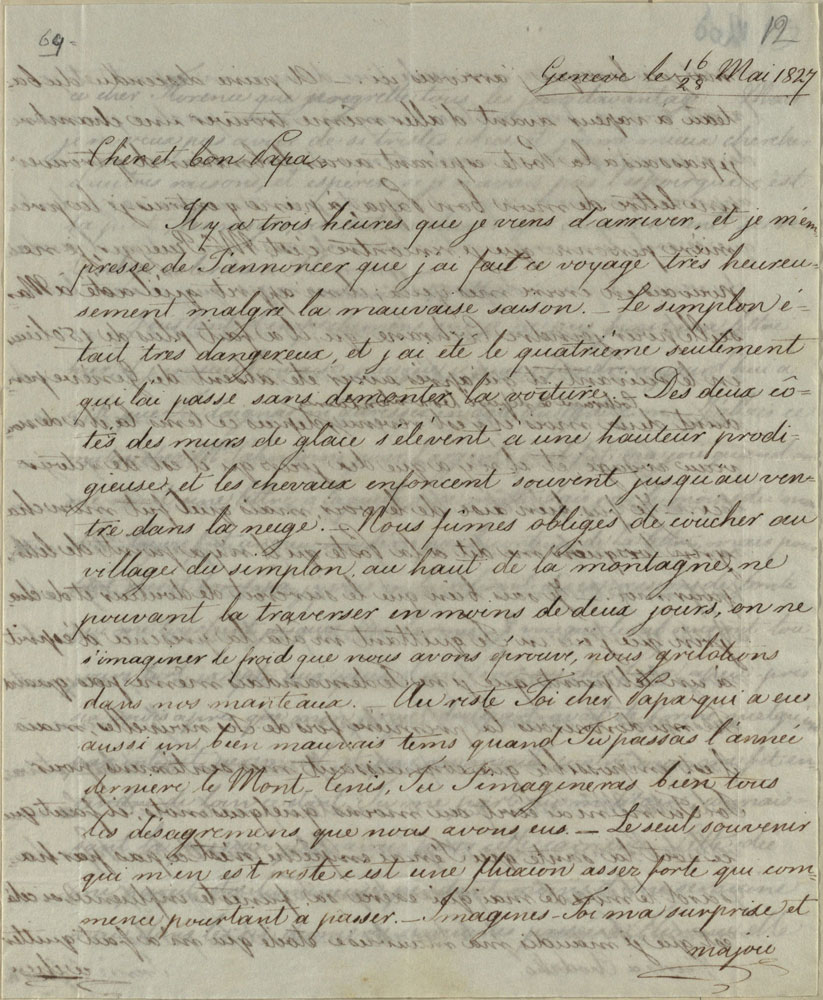 69.
12
Genève le 16/28 Mai 1827
Cher et bon Papa
Il y a trois heures que je viens d'arriver, et je m'em-
presse de T'annoncer que j'ai fait ce voyage très heureu-
sement malgré la mauvaise saison. — Le simplon é-
tait très dangereux, et j'ai été le quatrième seulement
qui l'ai passé sans demonter la voiture. — Des deux cô-
tés des murs de glace s'élèvent à une hauteur prodi-
gieuse, et les chevaux enfoncent souvent jusqu'au ven-
tre dans la neige. — Nous fûmes obligés de coucher au
village du simplon, au haut de la montagne, ne
pouvant la traverser en moins de deux jours, on ne
s'imaginer le froid que nous avons éprouvé, nous grelotions
dans nos manteaux. — Au riste Toi cher Papa qui a eu
aussi un bien mauvais tems quand Tu passas l'année
dernière le Mont-Cenis, Tu T'imagineras bien tous
les désagremens que nous avons eus. — Le seul souvenir
qui m'en est risté c'est une fluxion assez forte qui com-
mence pourtant à passer. — Imagines-Toi ma surprise et
ma joie